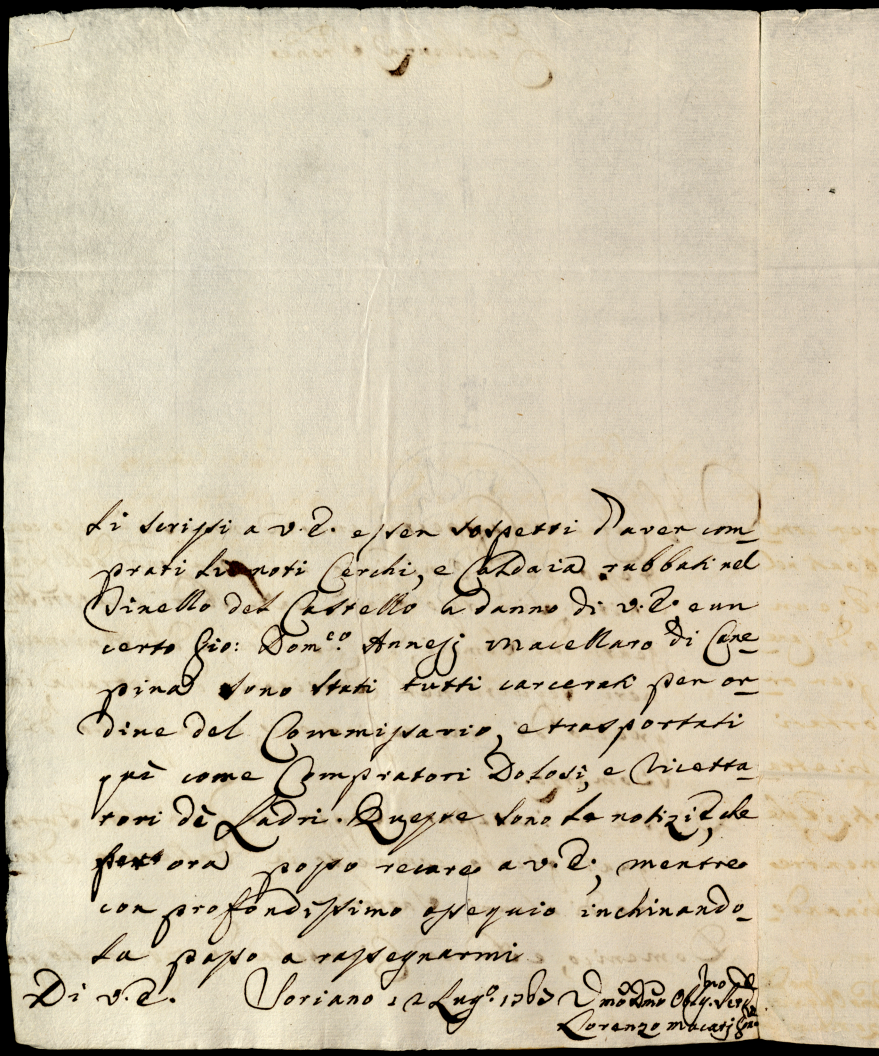 li scrissi a V. E. esser sospetti d'aver com_
prati li noti Cerchi, e Caldaia rubbati nel
Tinello del Castello a danno di V. E. e un
certo Gio: Dom.co Annesj Macellaro di Cane_
pina sono stati tutti carcerati per or_
dine del Commissario, e trasportati
quì come Compratori Dolosi, e Ricetta_
tori dè Ladri. Queste sono le notizie, che
per ora posso recare a V. E., mentre
con profondissimo ossequio inchinando_
la passo a rassegnarmi
Di V. E. Soriano 12 Lug.o Umo Dmo Obg.mo
Lorenzo